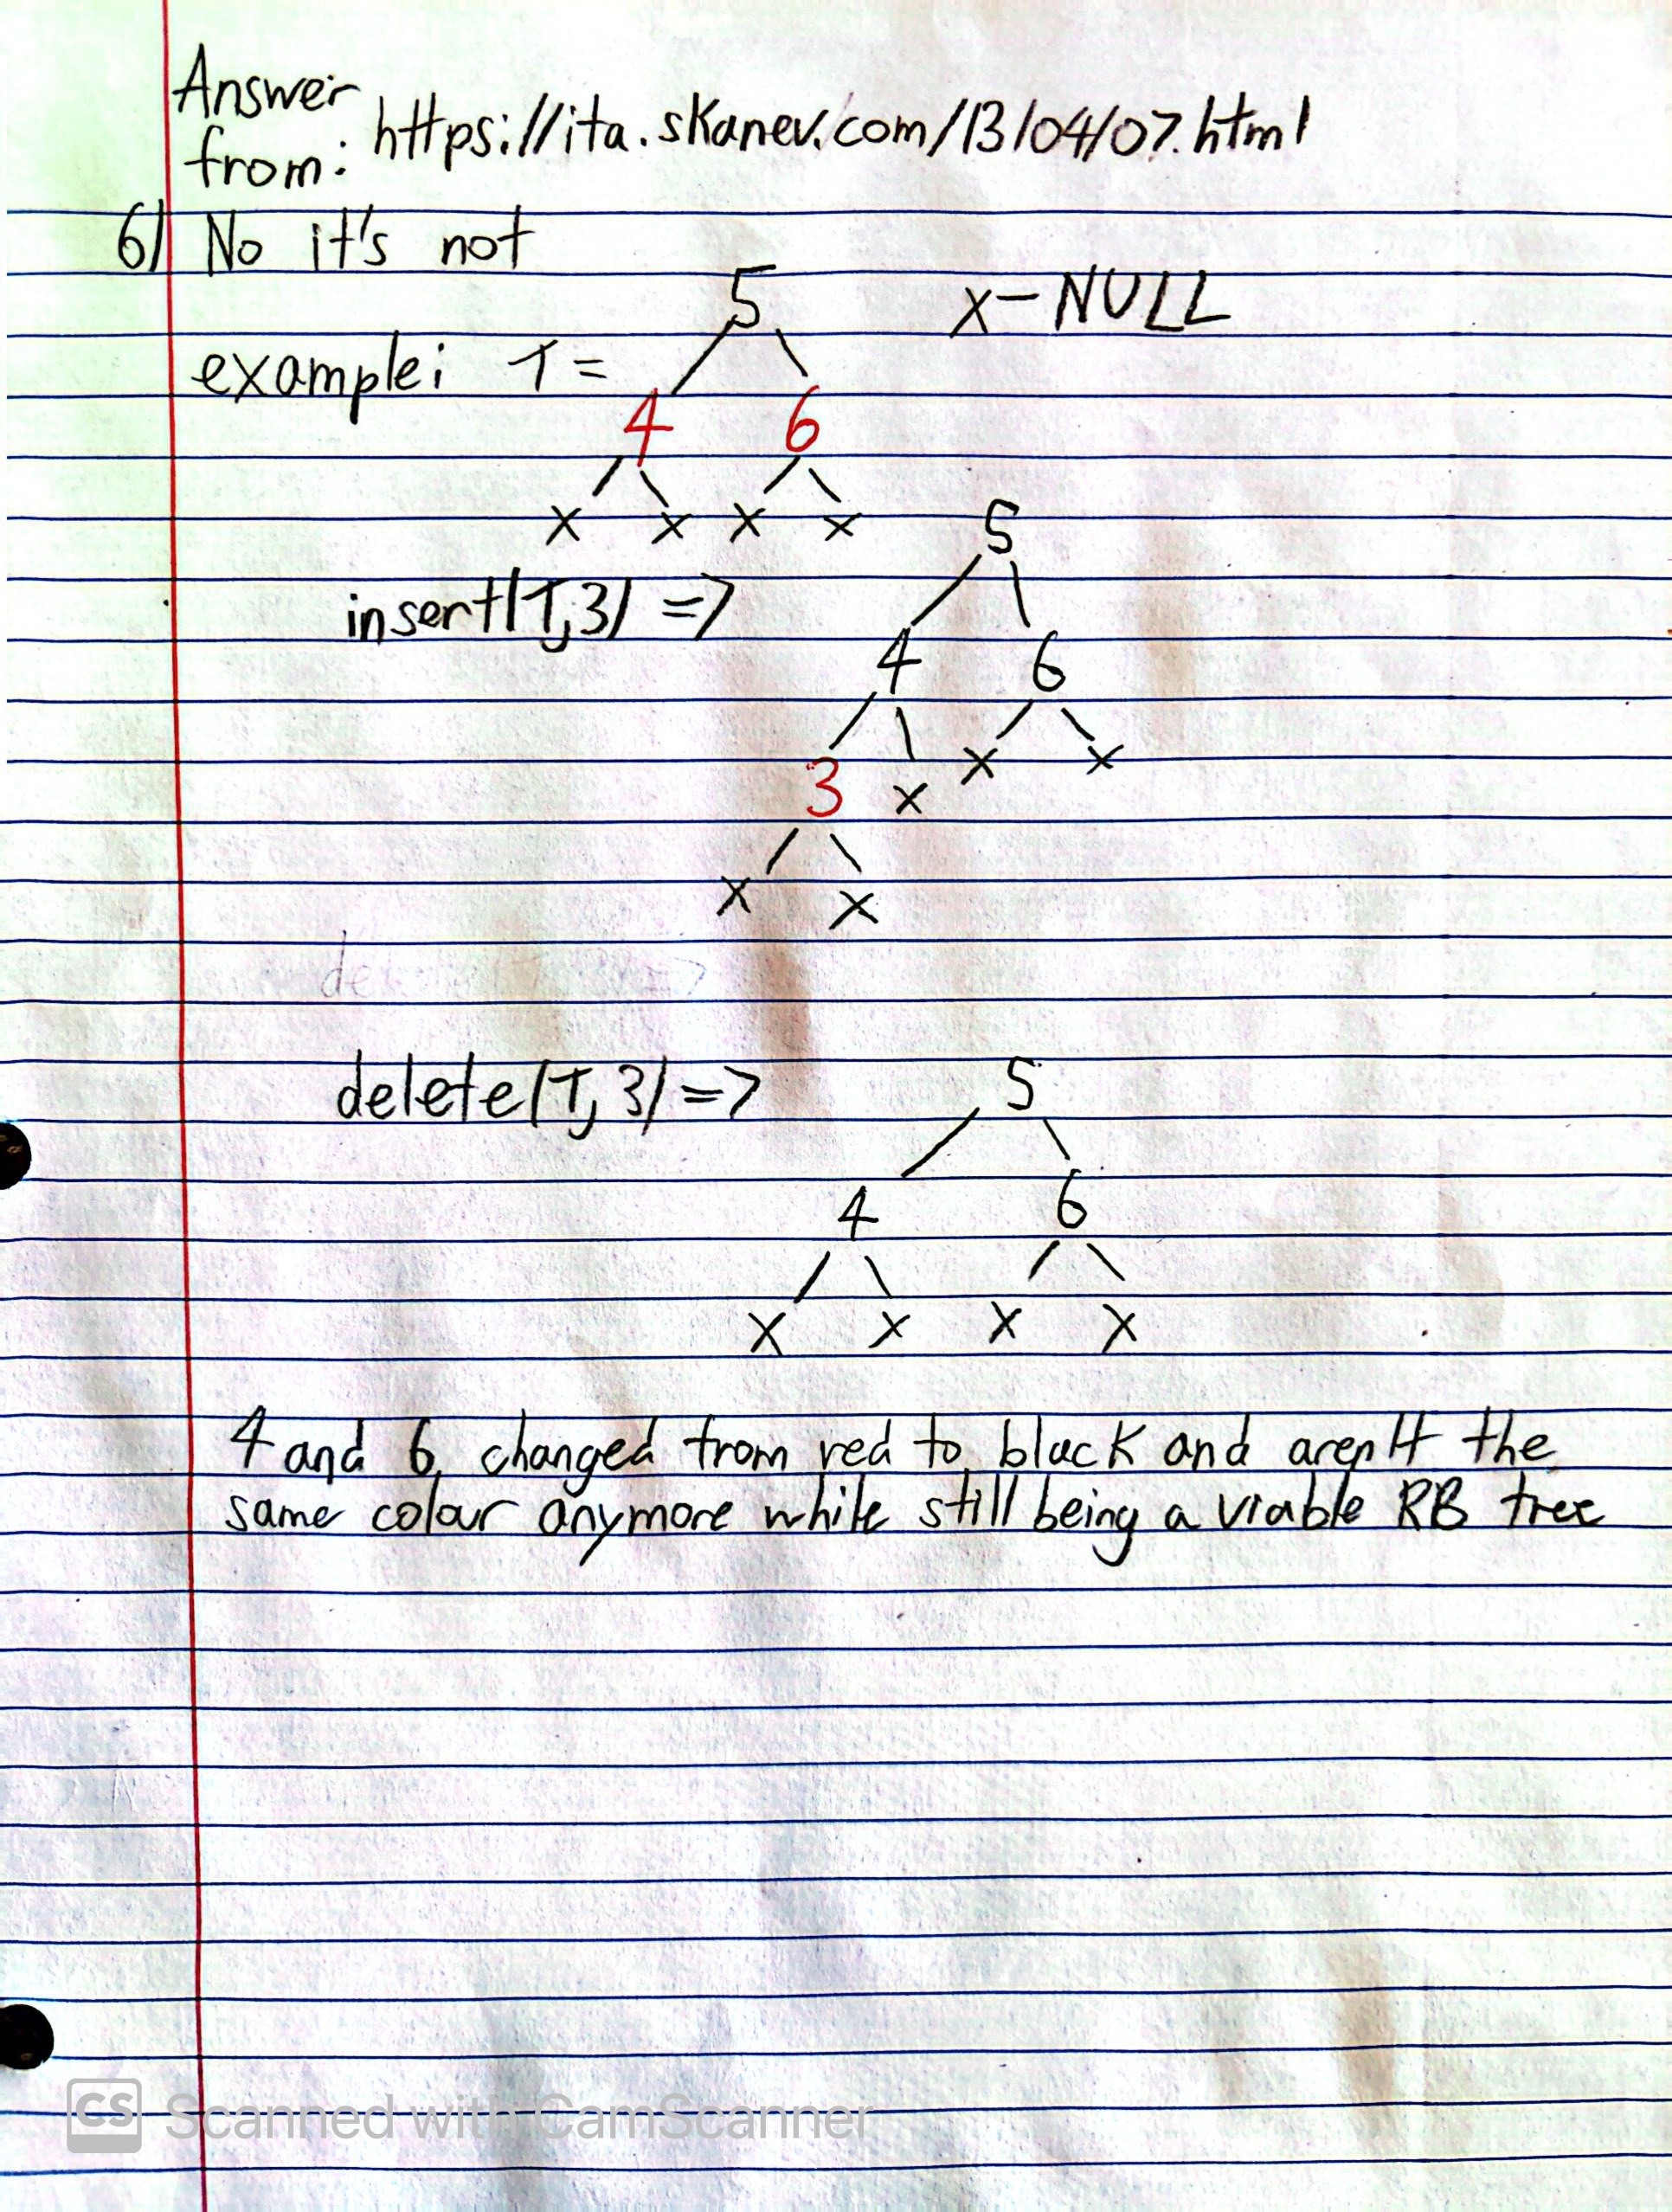 Answer
from: https://ita.skanev.com/13/04/07.html
6) No it's not
5 x-NULL
example: T =
4 6
x x x x
5
insert(T,3) =>
4 6
x x
3 x
x x
delete(T,3) => 5
4 6
x x x x
4 and 6 changed from red to black and aren't the
same colour anymore while still being a viable RB tree
CS Scanned with CamScanner